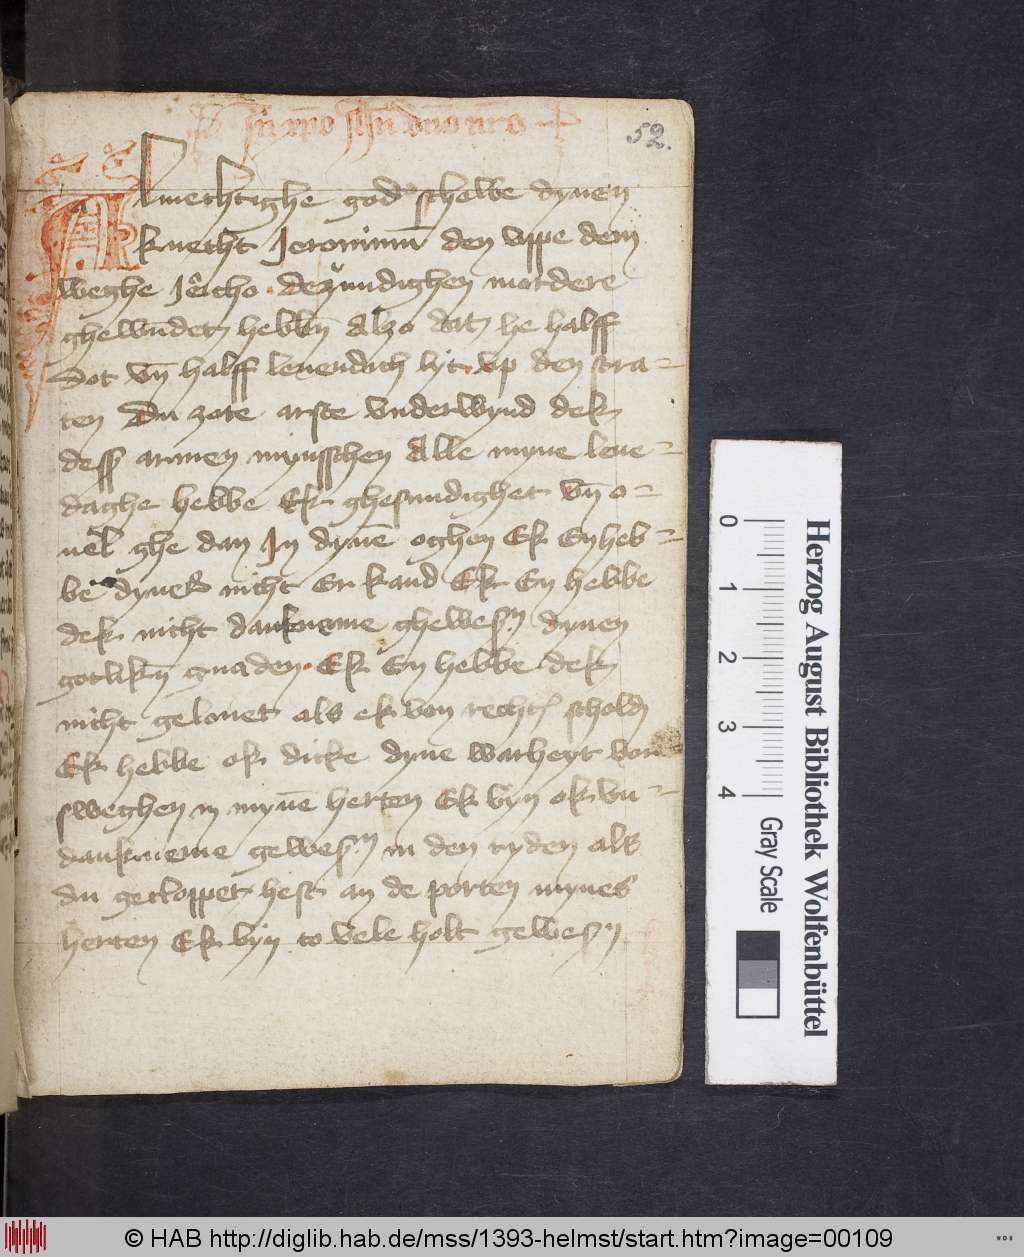 52.
Almechtighe god schelbe dynen
knecht Jeronimū den vppe dem
weghe Jericho · de zundighen mordere
ghewndet hebbn Alzo dat he halff
dot vn̄ halff leuendich lyt vp den stra-
ten Du zote arste vnderwynd dek
dess armen mynsschen Alle myne leue-
daghe hebbe Ek ghesundighet vn̄ o-
uel ghe dan In dynē oghen Ek Enheb-
be dyner nicht Er kand Ek En hebbe
dek nicht dankneme ghewesn dynen
gotlikn gnaden · Ek En hebbe dek
nicht gelouet als ek von recht scholde
Ek hebbe ok dicke dyne warheyt vor
sweghen in mynē herten Ek byn ok vn-
dankneme gewesn in den tyden als
du gecloppet hest an de porten mynes
herten Ek byn to vele holt gewesn
0 1 2 3 4
Herzog August Bibliothek Wolfenbüttel
Gray Scale
© HAB http://diglib.hab.de/mss/1393-helmst/start.htm?image=00109